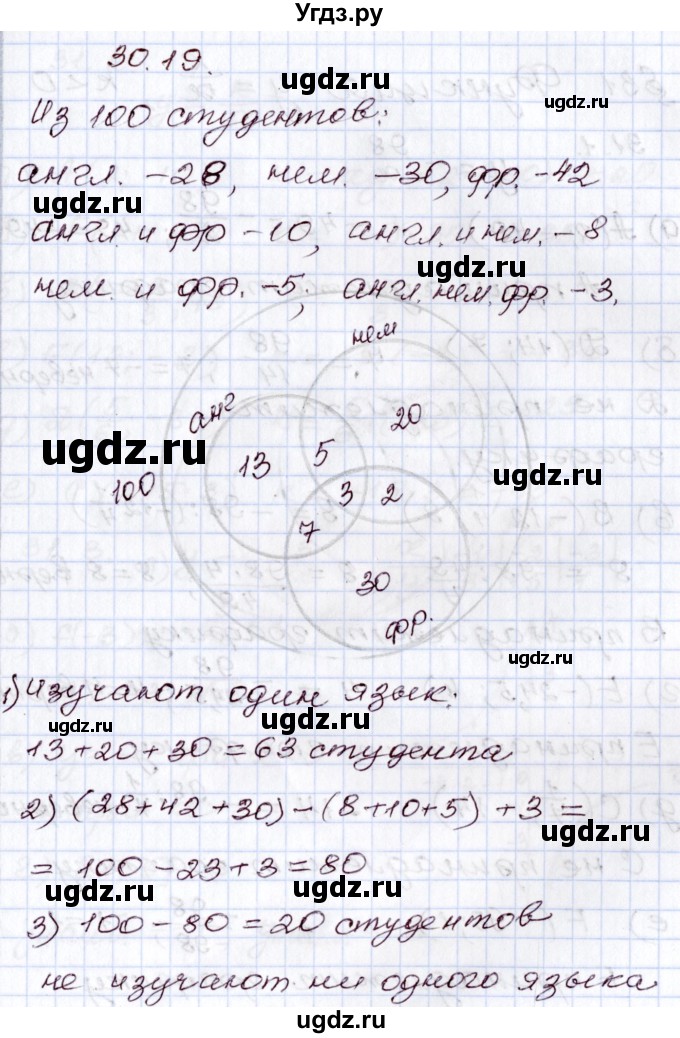 Угдз.ру
30.19.
Из 100 студентов:
англ. -28, нем. -30, фр. -42
англ и фр -10, англ. и нем. -8
нем. и фр. -5, англ. нем. фр. -3.
нем
анг
20
13
5
100
3
2
7
30
фр.
1) Изучают один язык:
13+20+30=63 студента
2) (28+42+30)-(8+10+5)+3=
=100-23+3=80
3) 100-80=20 студентов
не изучают ни одного языка
ugdz.ru
ugdz.ru
ugdz.ru
ugdz.ru
ugdz.ru
ugdz.ru
ugdz.ru
ugdz.ru
ugdz.ru
ugdz.ru
ugdz.ru
ugdz.ru
ugdz.ru